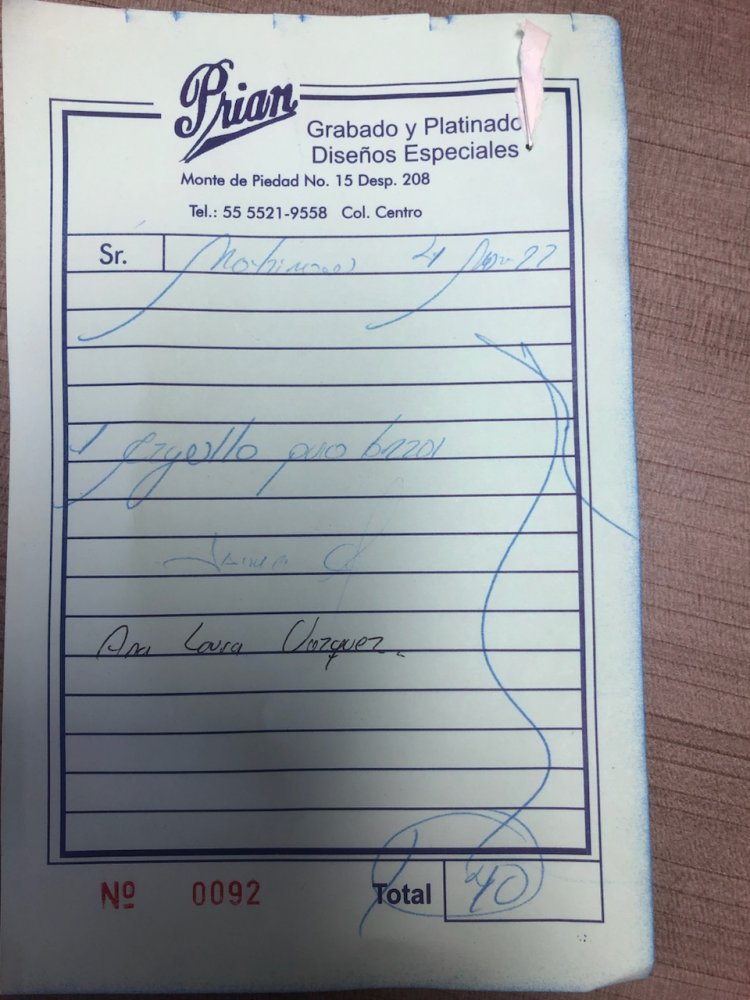 Prian
Grabado y Platinado
Diseños Especiales
Monte de Piedad No. 15 Desp. 208
Tel.: 55 5521-9558 Col. Centro
Sr.
4 22
1
Ana Luisa Vazquez
Nº 0092 Total 40